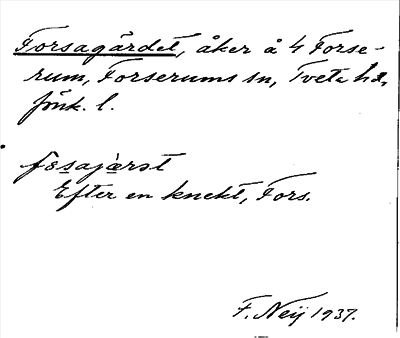 Forsagärdet, åker å 4 Forse-
rum, Forserums sn, Tveta hd,
Jönk. l.
fosajærst
Efter en knekt, Fors.
F. Neij 1937.